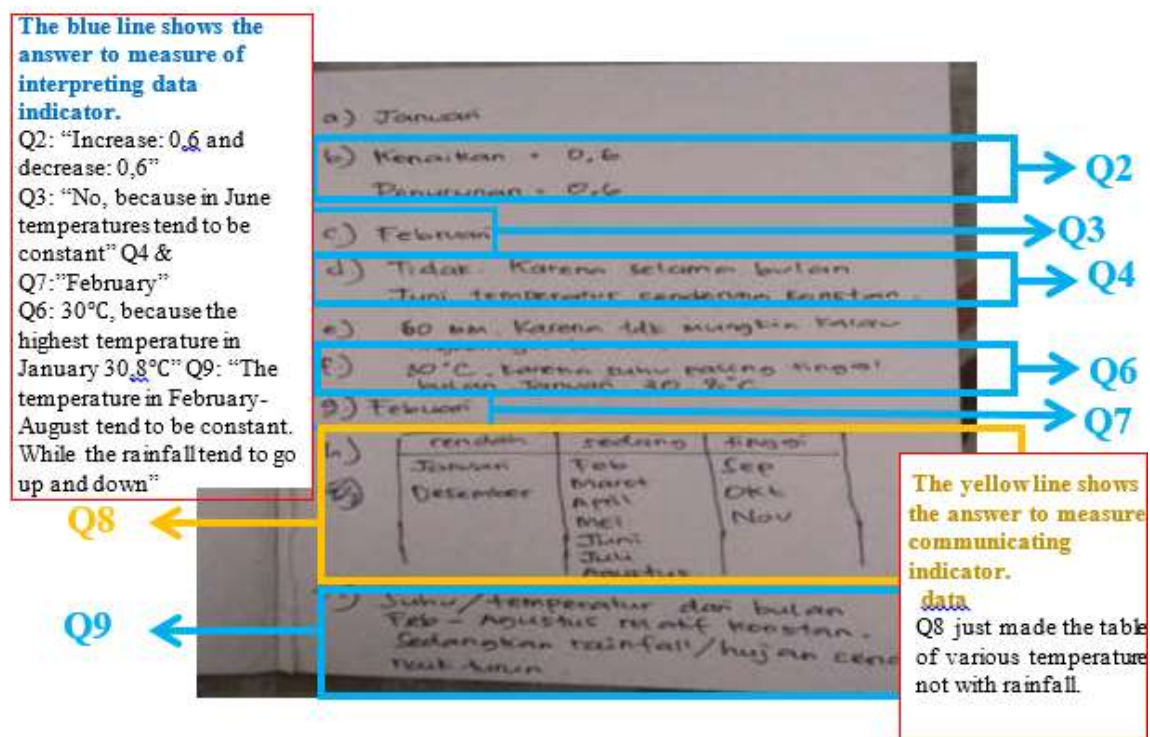 The blue line shows the
answer to measure of
interpreting data
indicator.
Q2: “Increase: 0,6 and
decrease: 0,6”
Q3: “No, because in June
temperatures tend to be
constant” Q4 &
Q7:”February”
Q6: 30°C, because the
highest temperature in
January 30,8°C” Q9: “The
temperature in February-
August tend to be constant.
While the rainfall tend to go
up and down”
a) Januari
b) Kenaikan = 0,6
Penurunan = 0,6
Q2
c) Februari
Q3
d) Tidak. Karena selama bulan
Juni temperatur cenderung konstan.
Q4
e) 60 mm. Karena tdk mungkin kalau
f.) 30°C, karena suhu paling tinggi
bulan Januari 30,8°C
Q6
g.) Februari
Q7
h.) rendah sedang tinggi
Januari Feb Sep
Desember Maret Okt
April Nov
Mei
Juni
Juli
Agustus
Q8
Suhu/temperatur dari bulan
Feb - Agustus relatif konstan.
Sedangkan rainfall/hujan cend
naik turun
Q9
The yellow line shows
the answer to measure
communicating
indicator.
data
Q8 just made the table
of various temperature
not with rainfall.